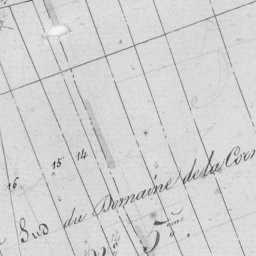 16 15 14
Sud du Domaine de la Corn
5.ème